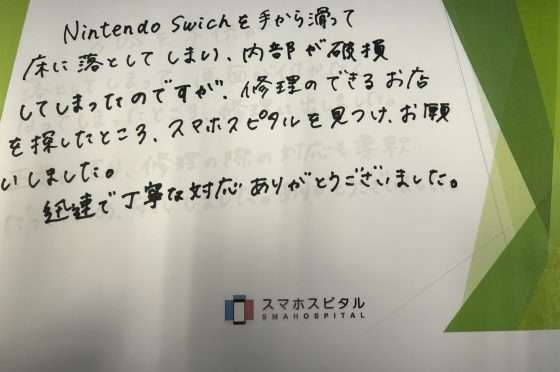 Nintendo Swichを手から滑って
床に落としてしまい、内部が破損
してしまったのですが、修理のできるお店
を探したところ、スマホスピタルを見つけ、お願
いしました。
迅速で丁寧な対応ありがとうございました。
スマホスピタル
SMAHOSPITAL